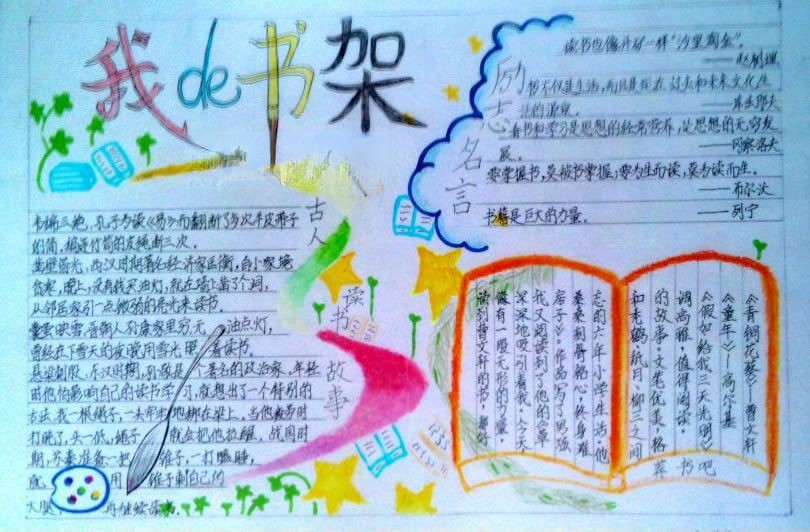 我de书架
励志名言
读书也像开矿一样"沙里淘金"。
——赵树理
书不仅是生活,而且是现在、过去和未来文化生
活的源泉。
——库法耶夫
看书和学习是思想的经常营养,是思想的无穷发
展。
——冈察洛夫
要掌握书,莫被书掌握;要为生而读,莫为读而生。
——布尔沃
书籍是巨大的力量。
——列宁
古人读书故事
韦编三绝,孔子为读《易》而翻断了多次牛皮带子
的简,编连竹简的皮绳断三次。
凿壁偷光,西汉时期著名经济家匡衡,自小家境
贫寒,晚上,没有钱买油灯,就在墙上凿了个洞,
从邻居家引一点微弱的亮光来读书。
囊萤映雪,晋朝人孙康家里穷无 油点灯,
曾经在下雪天的夜晚用雪光照着读书。
悬梁刺股,东汉时期,孙敬是个著名的政治家,年轻
时他怕影响自己的读书学习,就想出了一个特别的
方法,找一根绳子,一头牢牢地绑在梁上,当他疲劳时
打盹了,头一低,绳子 就会把他拉醒。战国时
期,苏秦准备一把 锥子,一打瞌睡,
就 用 锥子刺自己的
大腿, 再继续读书。
《青铜花葵》——曹文轩
《童年》——高尔基
《假如给我三天光明》
调高雅,值得阅读
的故事,文笔优美,格
和香鹤纸月,柳三之间
荐书吧
忘的六年小学生活。他
桑桑刻骨铭心,终身难
君子》。作品写了男孩
我又阅读到了他的《草
深深地吸引着我。今天
像有一股无形的力量,
读到曹文轩的书,都好